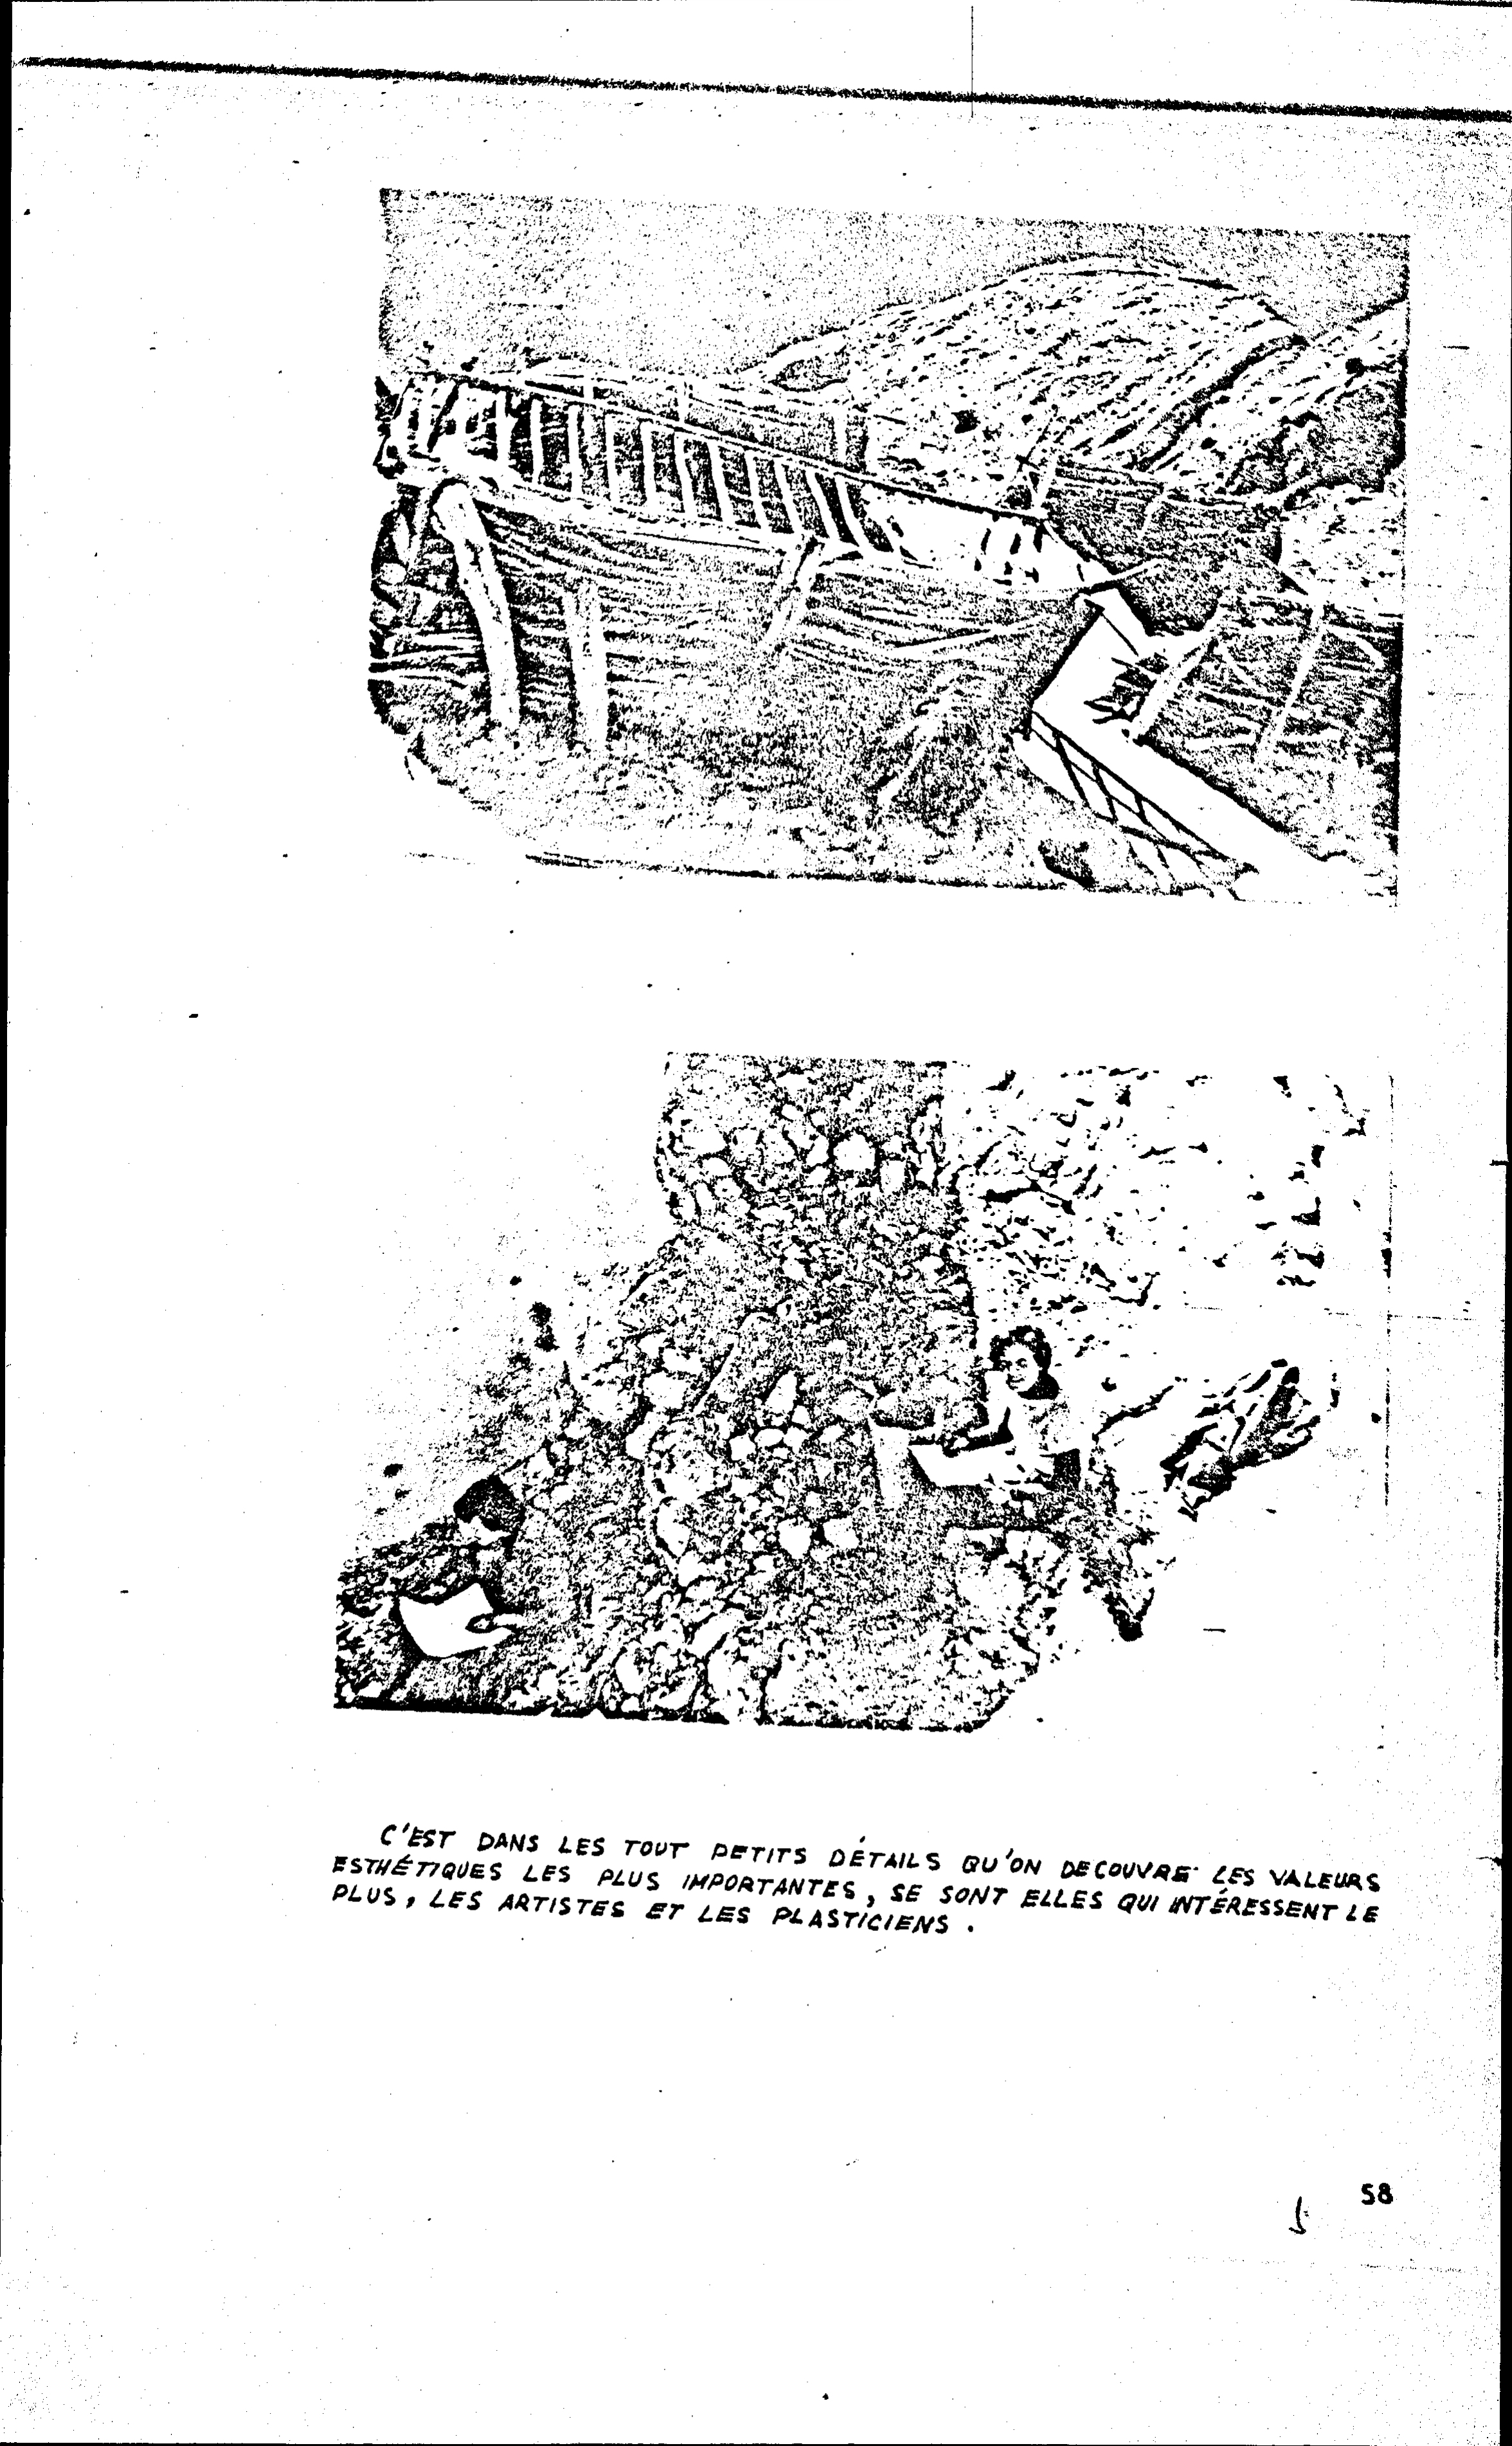 C'EST DANS LES TOUT PETITS DÉTAILS QU'ON DECOUVRE LES VALEURS
ESTHÉTIQUES LES PLUS IMPORTANTES, SE SONT ELLES QUI INTÉRESSENT LE
PLUS, LES ARTISTES ET LES PLASTICIENS.
58